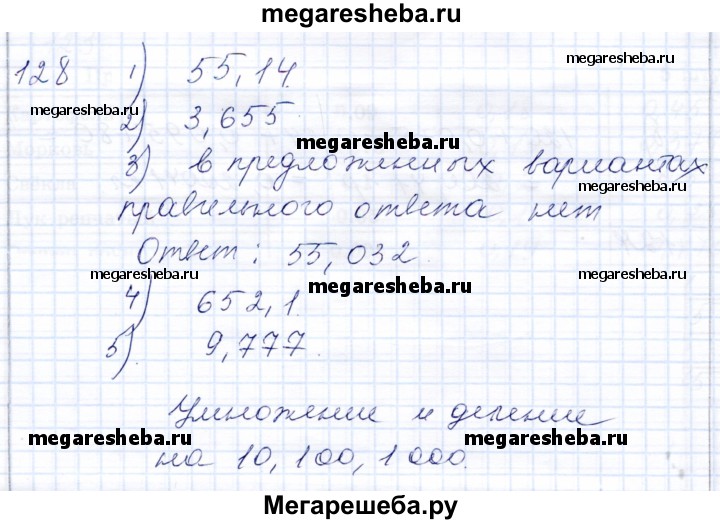 megaresheba.ru
128 1) 55,14.
megaresheba.ru
megaresheba.ru
2) 3,655
megaresheba.ru
3) в предложенных вариантах
правильного ответа нет
Ответ: 55,032.
megaresheba.ru
megaresheba.ru
4) 652,1.
megaresheba.ru
5) 9,777.
Умножение и деление
megaresheba.ru
megaresheba.ru
на 10, 100, 1000.
Мегарешеба.ру